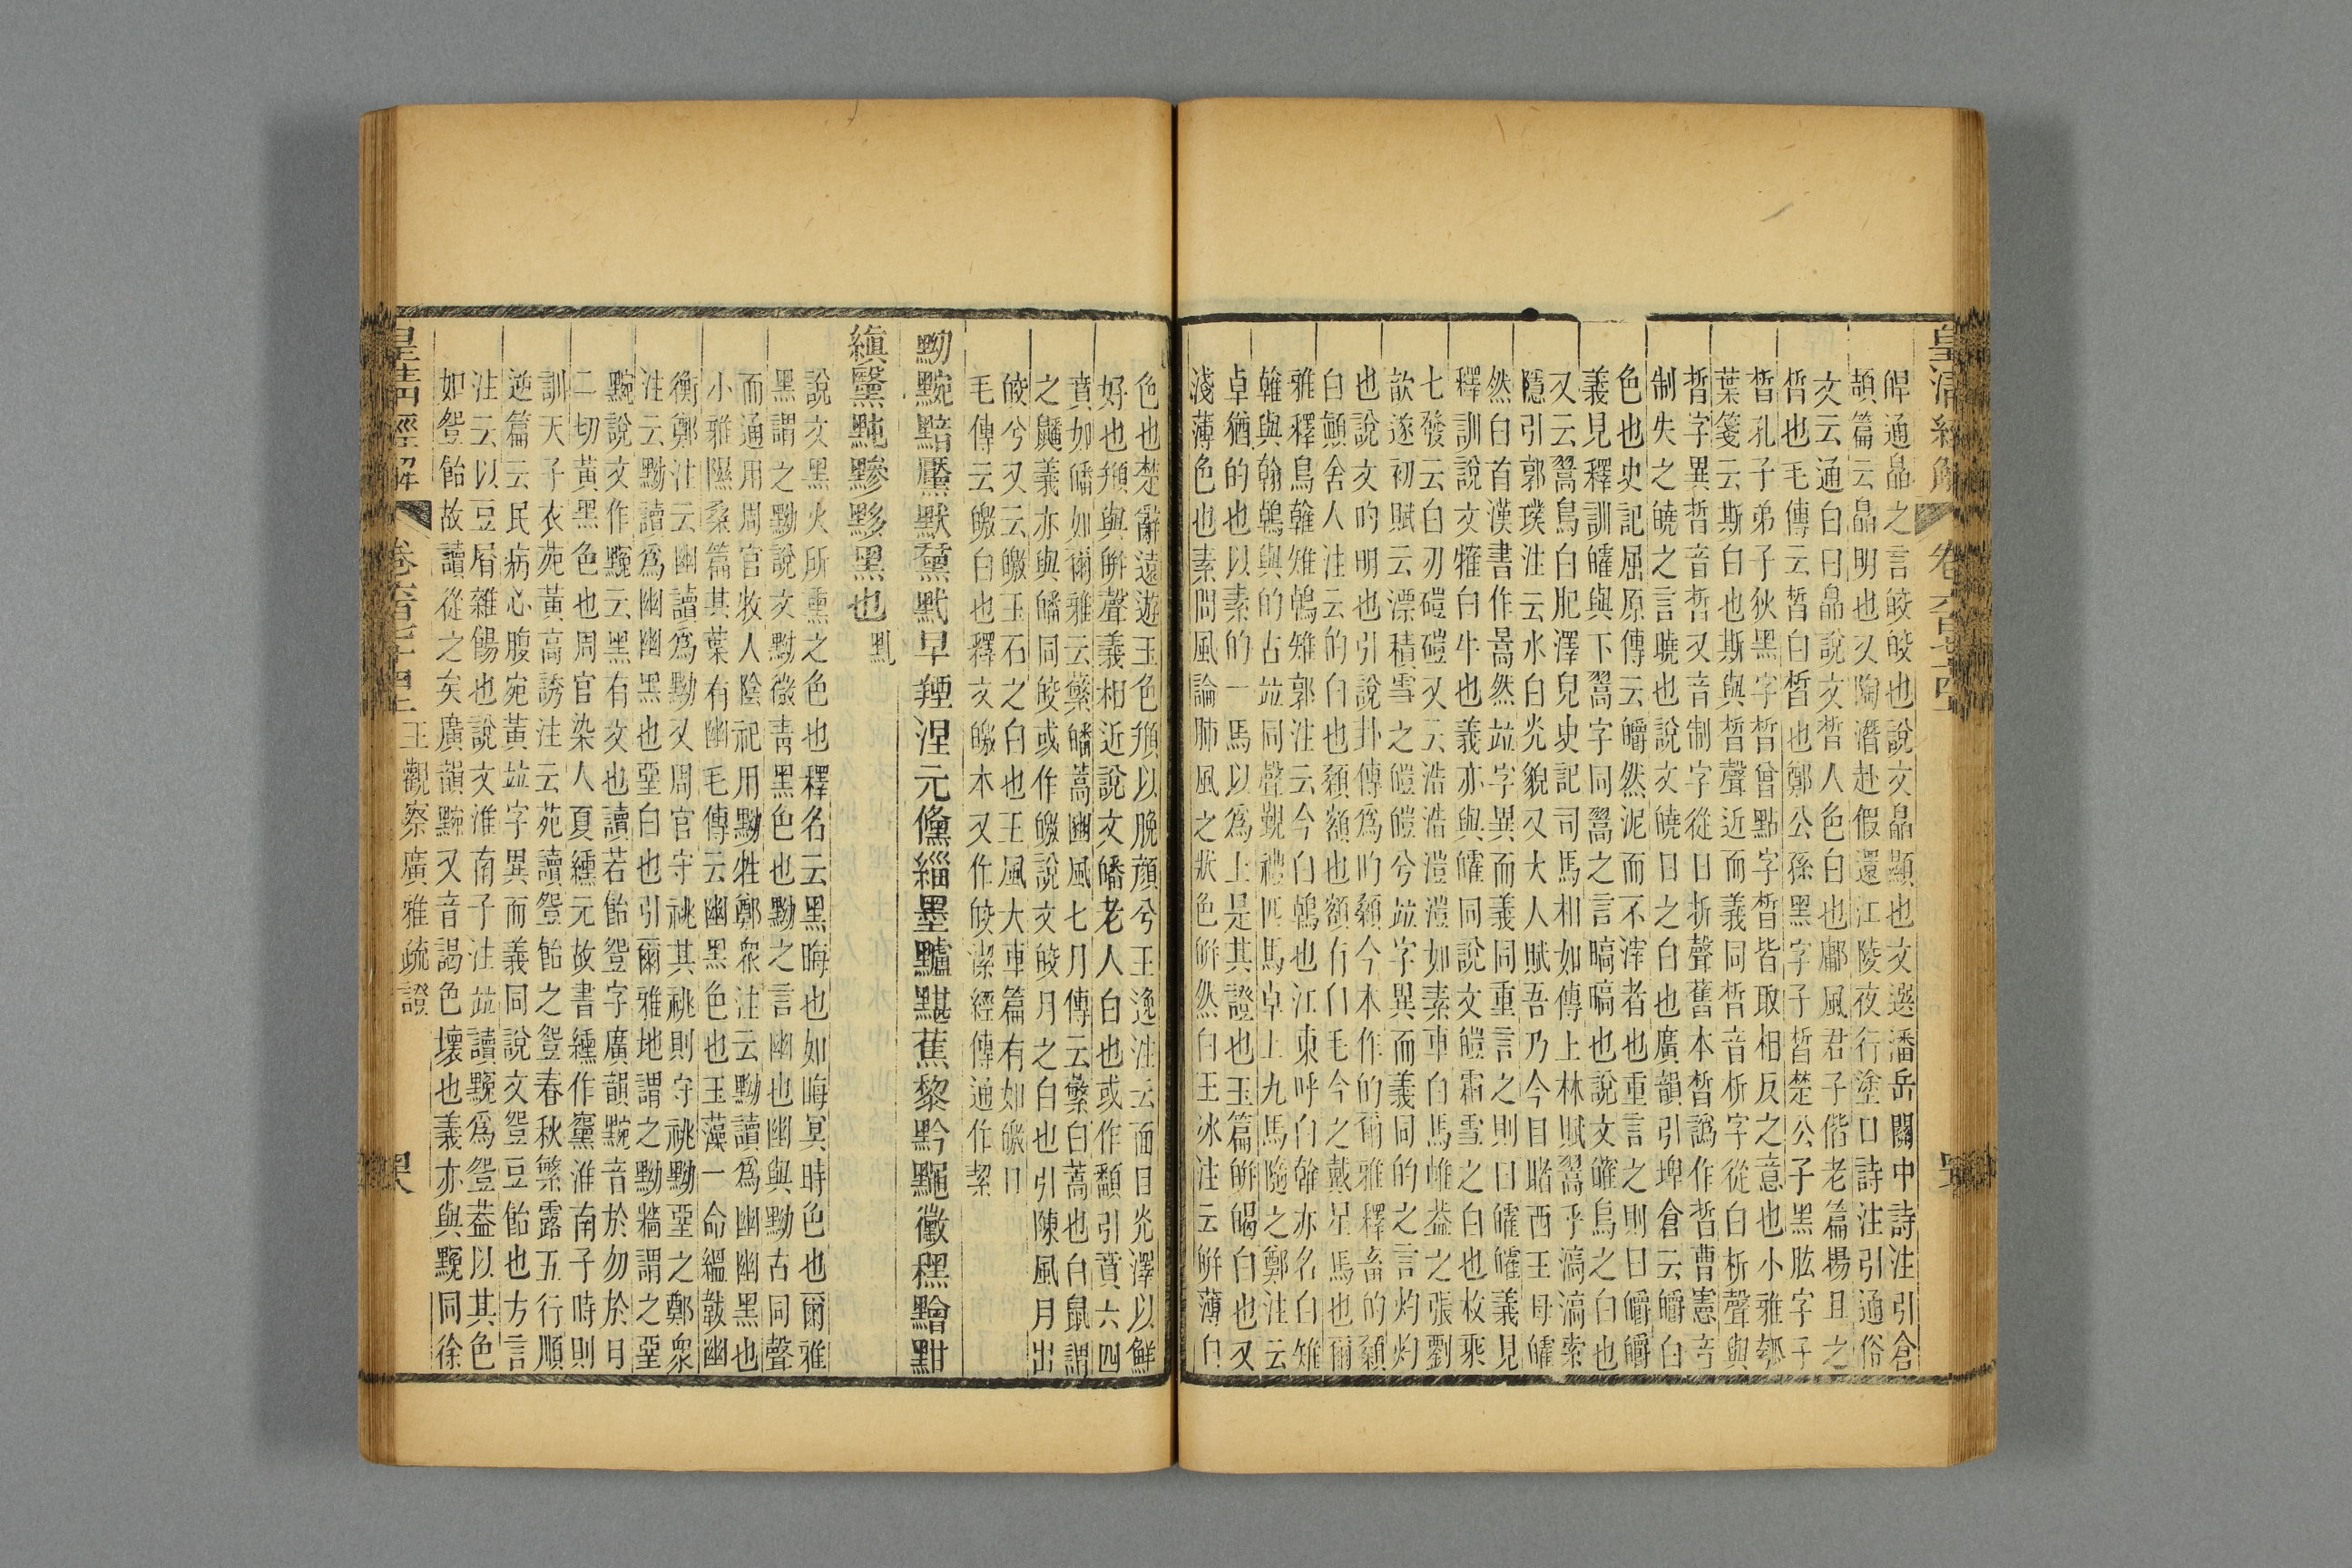 皇清經解 卷六百七十四
皞通皛之言皎皎也說文皛顯也文選潘岳關中詩注引倉
頡篇云皛明也又陶潛赴假還江陵夜行塗口詩注引通俗
文云通白曰皛說文皙人色白也鄘風君子偕老篇揚且之
皙也毛傳云皙白皙也鄭公孫黑字子皙楚公子黑肱字子
皙孔子弟子狄黑字皙曾點字皙皆取相反之意也小雅瓠
葉箋云斯白也斯與皙聲近而義同皙音析字從白析聲與
晢字異晢音哲又音制字從日折聲舊本皙譌作晢曹憲音
制失之皢之言曉也說文皢日之白也廣韻引埤倉云皭白
色也史記屈原傳云皭然泥而不滓者也重言之則曰皭皭
義見釋訓皠與下翯字同翯之言暠暠也說文皠鳥之白也
又云翯鳥白肥澤皃史記司馬相如傳上林賦翯乎滈滈索
隱引郭璞注云水白光貌又大人賦吾乃今目睹西王母皠
然白首漢書作暠然竝字異而義同重言之則曰皠皠義見
釋訓說文㹊白牛也義亦與皠同說文皚霜雪之白也枚乘
七發云白刃磑磑又云浩浩溰溰如素車白馬帷蓋之張劉
歆遂初賦云漂積雪之皚皚兮竝字異而義同的之言灼灼
也說文旳明也引說卦傳為旳顙今本作的爾雅釋畜的顙
白顚舍人注云的白也顙額也額有白毛今之戴星馬也爾
雅釋鳥鶾雉鵫雉郭注云今白鵫也江東呼白鶾亦名白雉
鶾與翰鵫與的古竝同聲覲禮匹馬卓上九馬隨之鄭注云
卓猶的也以素的一馬以為上是其證也玉篇皏皘白也又
淺薄色也素問風論肺風之狀色皏然白王冰注云皏薄白
色也楚辭遠遊玉色頩以脕顔兮王逸注云面目光澤以鮮
好也頩與皏聲義相近說文皤老人白也或作䪤引賁六四
賁如皤如爾雅云蘩皤蒿豳風七月傳云蘩白蒿也白鼠謂
之鼶義亦與皤同皎或作皦說文皎月之白也引陳風月出
皎兮又云皦玉石之白也王風大車篇有如皦日
毛傳云皦白也釋文皦本又作皎潔經傳通作絜
黝䵪黯黶默黨黓早䵬涅元儵緇墨黸黮蕉黎黔黽黴䅼黵黚
縝黳黗黲黟黑也黑
說文黑火所熏之色也釋名云黑晦也如晦冥時色也爾雅
黑謂之黝說文黝微靑黑色也黝之言幽也幽與黝古同聲
而通用周官牧人陰祀用黝牲鄭衆注云黝讀為幽幽黑也
小雅隰桑篇其葉有幽毛傳云幽黑色也玉藻一命縕韍幽
衡鄭注云幽讀為黝又周官守祧其祧則守祧黝堊之鄭衆
注云黝讀為幽幽黑也堊白也引爾雅地謂之黝牆謂之堊
䵪說文作黦云黑有文也讀若飴䬵字廣韻䵪音於勿於月
二切黃黑色也周官染人夏纁元故書纁作䵫淮南子時則
訓天子衣苑黃高誘注云苑讀䬵飴之䬵春秋繁露五行順
逆篇云民病心腹宛黃竝字異而義同說文䬵豆飴也方言
注云以豆屑雜餳也說文淮南子注竝讀黦為䬵葢以其色
如䬵飴故讀從之矣廣韻䵪又音謁色壞也義亦與黦同徐
皇清經解 卷六百七十四上 王觀察廣雅疏證